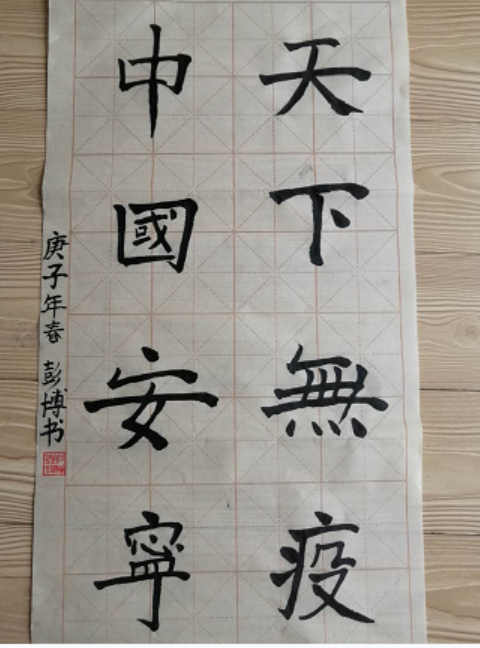 天下無疫
中國安寧
庚子年春 彭博书